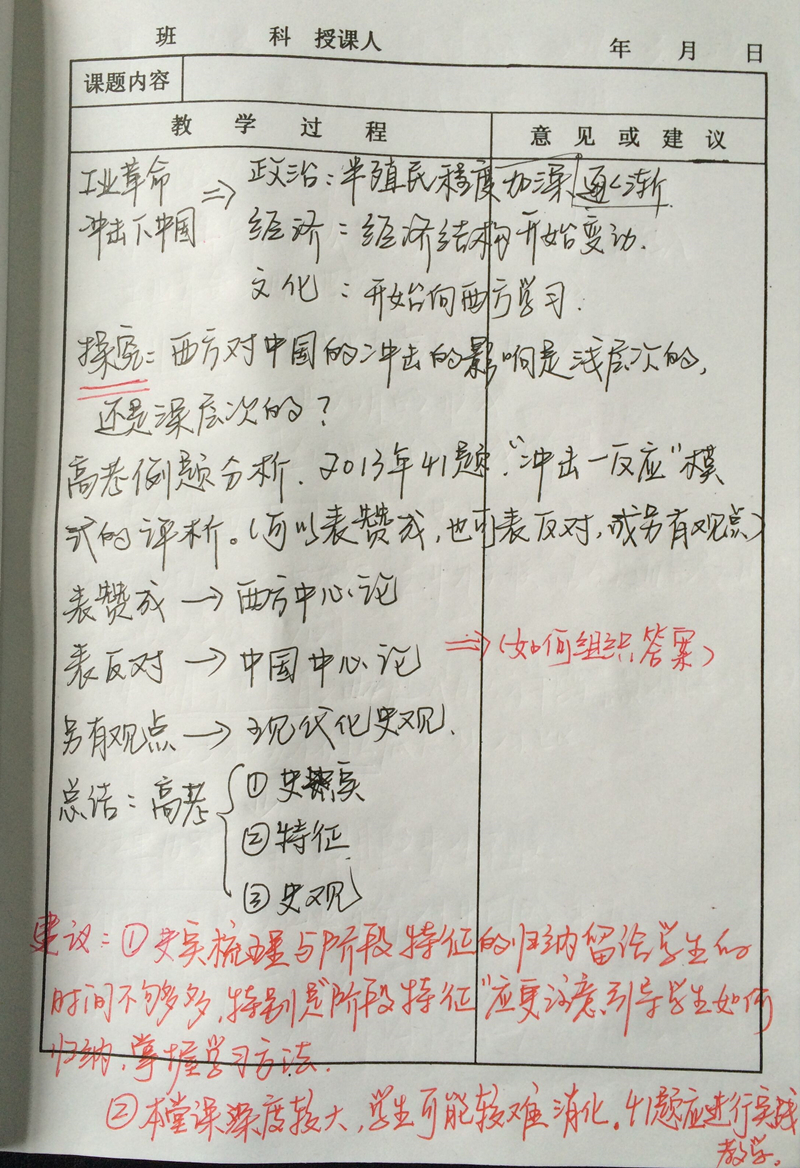 班 科 授课人 年 月 日
课题内容
教 学 过 程 意 见 或 建 议
工业革命 ⇒ 政治：半殖民程度加深，逐渐
冲击下中国 经济：经济结构开始变动.
文化：开始向西方学习.
探究：西方对中国的冲击的影响是浅层次的，
还是深层次的？
高考例题分析. 2013年41题."冲击－反应"模
式的评析。(可以表赞成，也可表反对，或另有观点)
表赞成→西方中心论
表反对→中国中心论 ⇒(如何组织答案)
另有观点→现代化史观.
总结：高考 ①史实
②特征
③史观
建议：①史实梳理与阶段特征的归纳留给学生的
时间不够多，特别是"阶段特征"应更注意引导学生如何
归纳，掌握学习方法.
②本堂课深度较大，学生可能较难消化。41题应进行实战
教学。